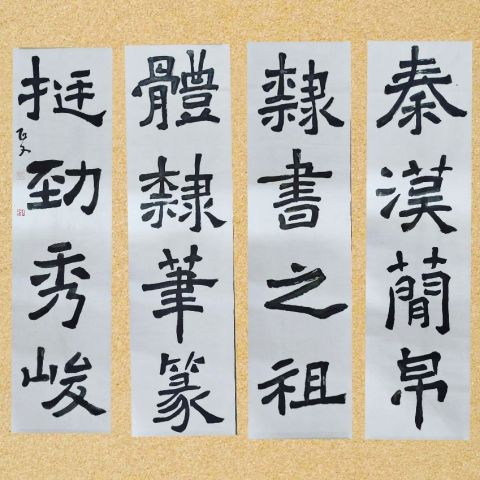 秦漢簡帛
隸書之祖
體隸筆篆
挺勁秀峻